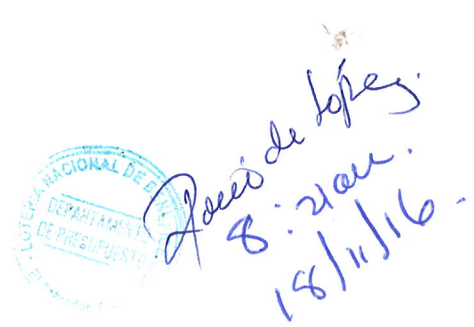 LOTERIA NACIONAL DE B
DEPARTAMENT
DE PRESUPUESTO
Roció de López.
8:21am.
18/11/16.